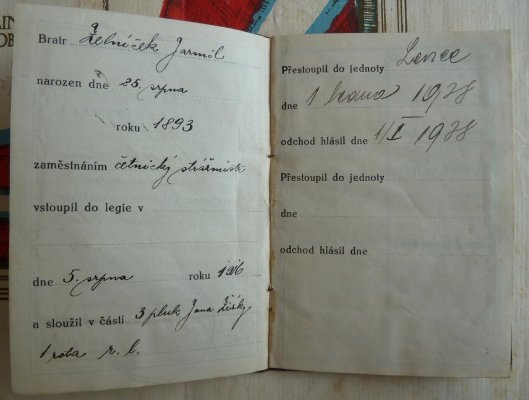 Bratr Zelníček Jarmil
narozen dne 25. srpna
roku 1893
zaměstnáním četnický strážmistr
vstoupil do legie v
dne 5. srpna roku 1916
a sloužil v části 3 pluk Jana Žižky
1 rota r. l.
Přestoupil do jednoty
dne 1 1928
odchod hlásil dne 1/I 1928
Přestoupil do jednoty
dne
odchod hlásil dne